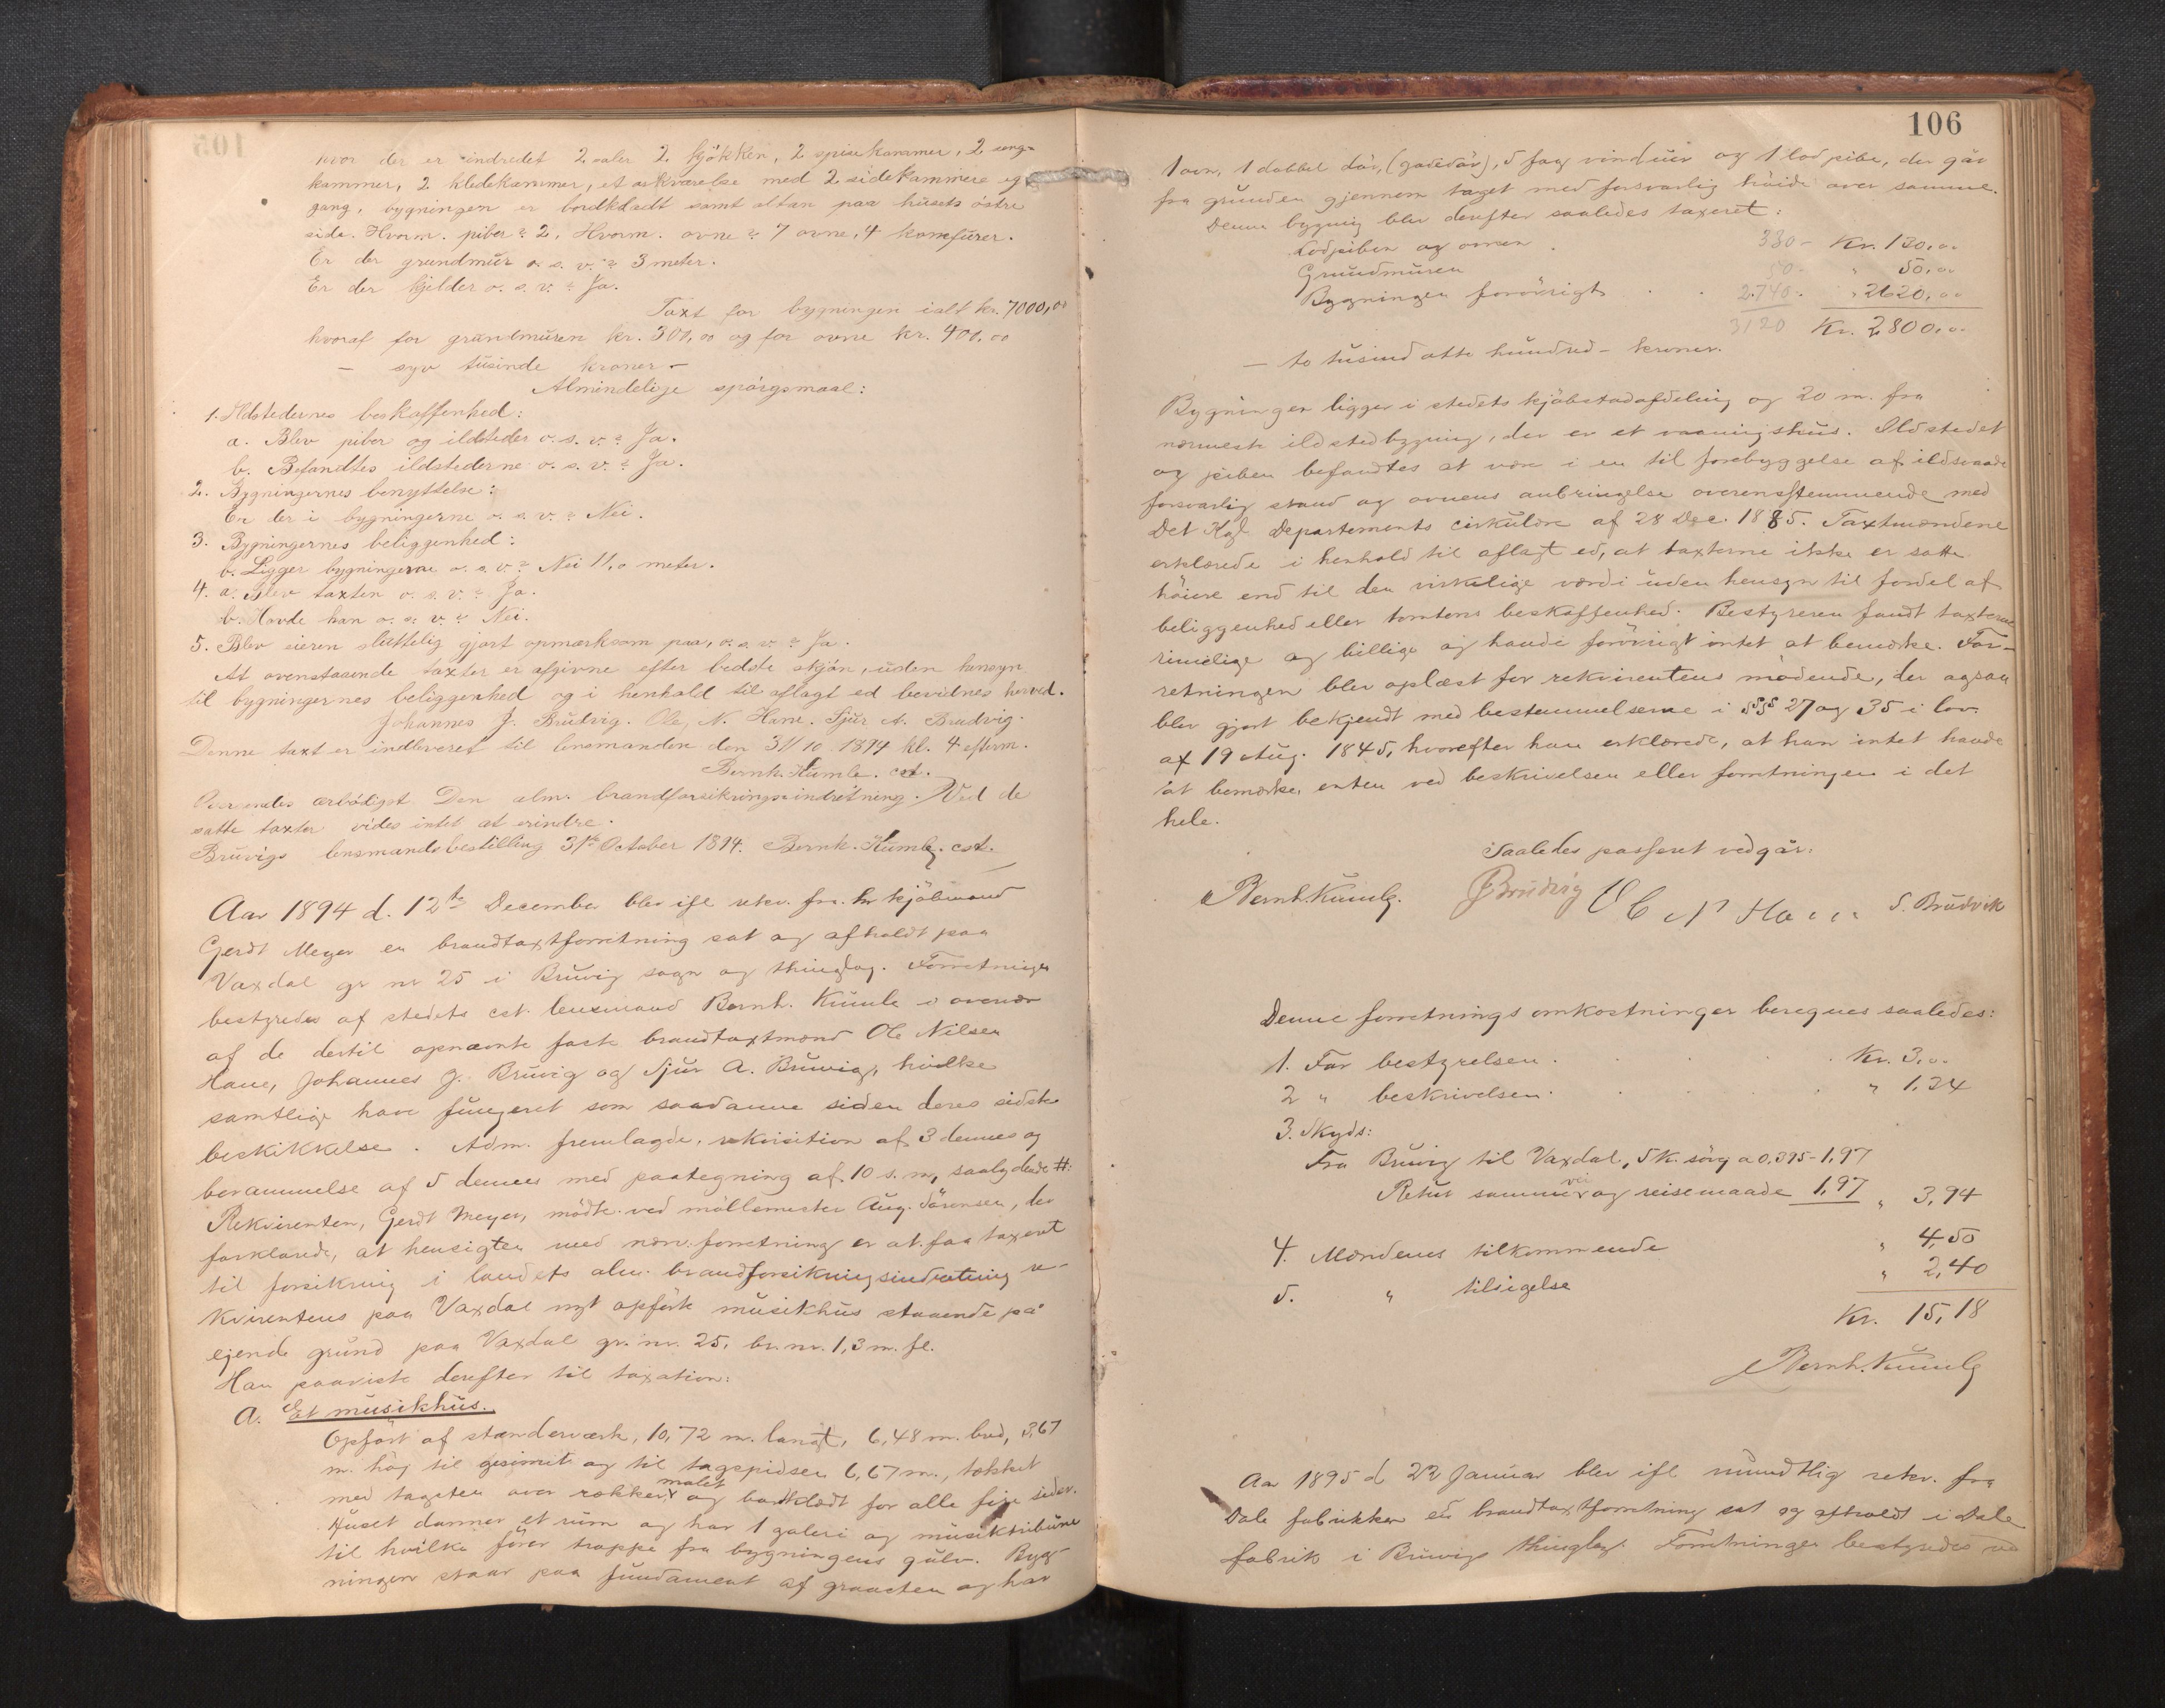 hvor der er indredet 2 saler 2 kjøkken, 2 spisekammer, 2 senge
kammer, 2 kledekammer, et arkværelse med 2 sidekammere og
gang, bygningen er bordkledt samt altan paa husets østre
side. Hvorm. piber? 2. Hvorm. ovne? 7 ovne, 4 komfurer.
Er der grundmur o. s. v.? 3 meter.
Er der kjelder o. s. v.? Ja.
Taxt for bygningen ialt kr. 7000,00
hvoraf for grundmuren kr. 300,00 og for ovne kr. 400,00
— syv tusinde kroner —
Almindelige spørgsmaal:
1. Ildstedernes beskaffenhed:
a. Blev piber og ildsteder o. s. v.? Ja.
b. Befandtes ildstederne o. s. v.? Ja.
2. Bygningernes benyttelse:
Er der i bygningerne o. s. v.? Nei.
3. Bygningernes beliggenhed:
b. Ligger bygningerne o. s. v.? Nei 11,0 meter.
4. a. Blev taxten o. s. v.? Ja.
b. Havde han o. s. v.? Nei.
5. Blev eieren sluttelig gjort opmærksom paa, o. s. v.? Ja.
At ovenstaaende taxter er afgivne efter bedste skjøn, uden hensyn
til bygningernes beliggenhed og i henhold til aflagt ed bevidnes herved.
Johannes J. Brudvig. Ole N. Hane. Sjur A. Brudvig.
Denne taxt er indleveret til lensmanden den 31/10 1894 kl. 4 efterm.
Bernh. Kumle. cst.
Oversendes ærbødigst Den alm. brandforsikringsindretning. Ved de
satte taxter vides intet at erindre.
Bruvigs lensmandsbestilling 31te October 1894. Bernh. Kumle. cst.
Aar 1894 d. 12te December blev ifl rekv. fra hr kjøbmand
Gerdt Meyer en brandtaxtforretning sat og afholdt paa
Vaxdal gr nr 25 i Bruvig sogn og thinglag. Forretningen
bestyredes af stedets cst. lensmand Bernh. Kumle i overvær
af de dertil opnævnte faste brandtaxtmænd Ole Nilsen
Hane, Johannes J. Bruvig og Sjur A. Bruvig, hvilke
samtlige have fungeret som saadanne siden deres sidste
beskikkelse. Adm. fremlagde, rekvisition af 3 dennes og
berammelse af 5 dennes med paategning af 10 s. m, saalydende #:
Rekvirenten, Gerdt Meyer, mødte ved møllemester Aug. Sørensen, der
forklarede, at hensigten med nærv. forretning er at faa taxeret
til forsikring i landets alm. brandforsikringsindretning re-
kvirentens paa Vaxdal nyt opførte musikhus staaende på
ejende grund paa Vaxdal gr. nr. 25, br. nr. 1,3 m. fl.
Han paaviste derefter til taxation:
A. Et musikhus.
Opført af stænderværk, 10,72 m. langt, 6,48 m. bred, 3,67
m. høj til gesimset og til tagspidsen 6,67 m., tækket
med tagsten over rækker malet og bordklædt for alle fire sider.
Huset danner et rum og har 1 galeri og musiktribune
til hvilke fører trappe fra bygningens gulv. Byg-
ningen staar paa fundament af graasten og har
106
1 ovn, 1 dobbel dør, (gadedør), 5 fag vinduer og 1 lodpibe, der går
fra grunden gjennem taget med forsvarlig høide over samme.
Denne bygning blev derefter saaledes taxeret:
Lodpiben og ovnen . 330 - Kr. 130,00
Grundmuren 50 - " 50,00
Bygningen forøvrigt . . 2.740 - " 2620,00
3120 Kr. 2800,00
— to tusind otte hundred — kroner.
Bygningen ligger i stedets kjøbstadafdeling og 20 m. fra
nærmeste ildstedbygning, der er et vaaningshus. Ildstedet
og piben befandtes at være i en til forebyggelse af ildsvaade
forsvarlig stand og ovnens anbringelse overensstemmende med
Det Kgl. Departements cirkulære af 28 Dec. 1885. Taxtmændene
erklærede i henhold til aflagt ed, at taxterne ikke er satte
høiere end til den virkelige værdi uden hensyn til fordel af
beliggenhed eller tomtens beskaffenhed. Bestyreren fandt taxterne
rimelige og billige og havde forøvrigt intet at bemærke. For-
retningen blev oplæst for rekvirentens mødende, der ogsaa
blev gjort bekjendt med bestemmelserne i §§§ 27 og 35 i lov
af 19 Aug. 1845, hvorefter han erklærede, at han intet havde
at bemærke, enten ved beskrivelsen eller forretningen i det
hele.
Saaledes passeret vedgår:
Bernh. Kumle. J Brudvig Ole N Hane S. Brudvik
Denne forretnings omkostninger beregnes saaledes:
1. For bestyrelsen . . . Kr. 3,00
2 " beskrivelsen . . " 1,34
3. Skyds:
Fra Bruvig til Vaxdal, 5 k. søvej a 0,395 - 1,97
Retur samme vei og reisemaade 1,97 " 3,94
4. Mændenes tilkommende " 4,50
5. " tilsigelse " 2,40
Kr. 15,18
Bernh. Kumle
Aar 1895 d 22 Januar blev ifl mundtlig rekv. fra
Dale fabrikker en brandtaxtforretning sat og afholdt i Dale
fabrik i Bruvigs thinglag. Forretningen bestyredes ved